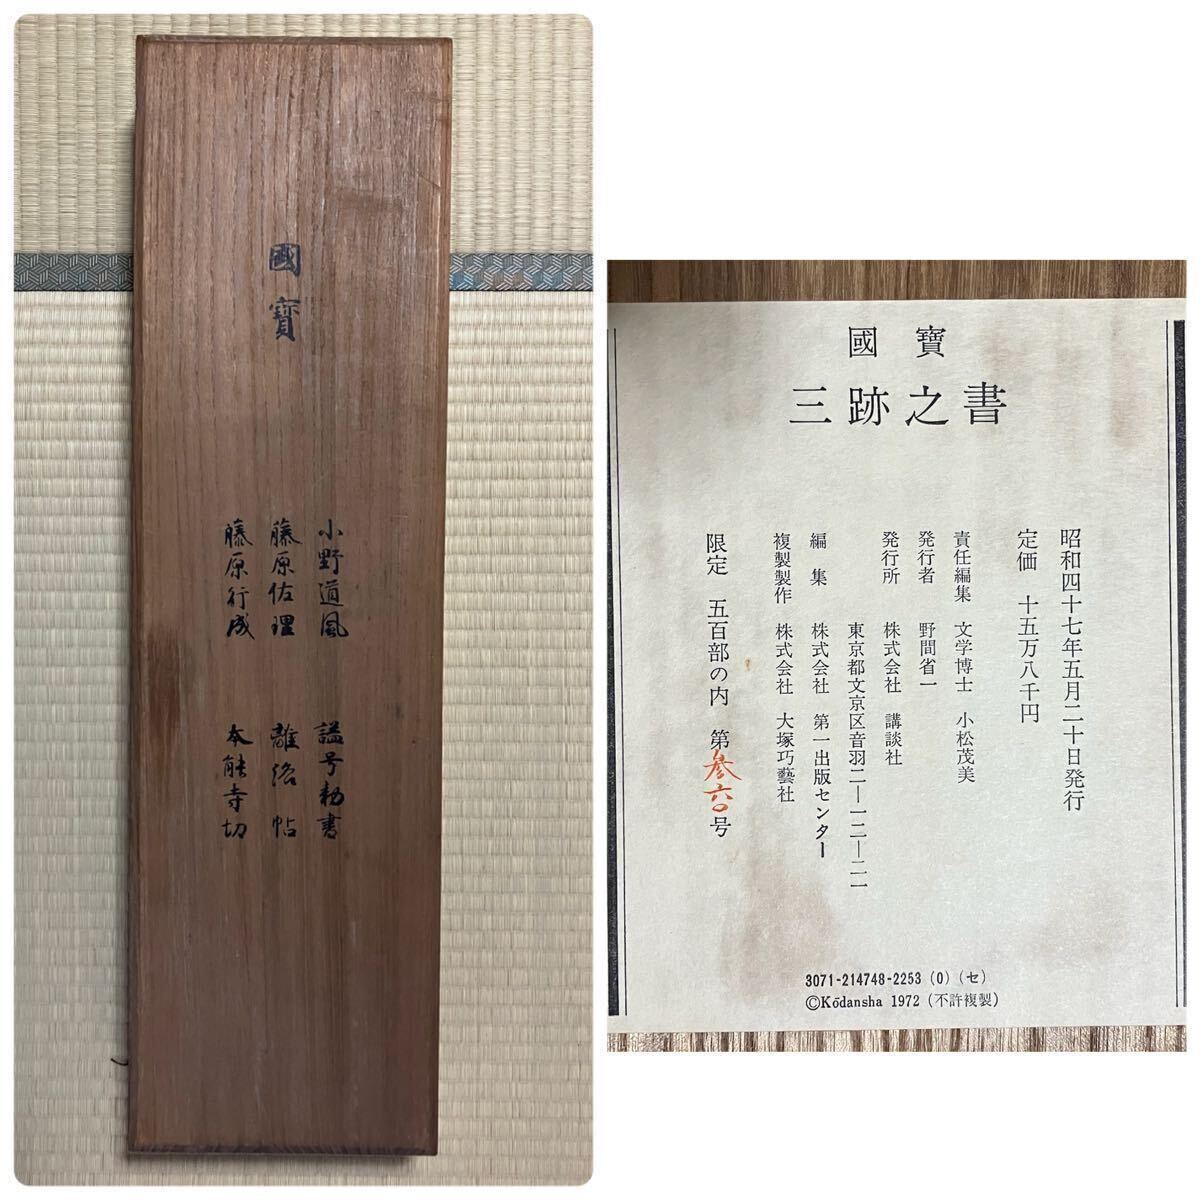 國寶
小野道風 諡号勅書
藤原佐理 離洛帖
藤原行成 本能寺切
國寶
三跡之書
昭和四十七年五月二十日発行
定価 十五万八千円
責任編集 文学博士 小松茂美
発行者 野間省一
発行所 株式会社 講談社
東京都文京区音羽二―一二―二一
編集 株式会社 第一出版センター
複製製作 株式会社 大塚巧藝社
限定 五百部の内 第参六〇号
3071-214748-2253 (0) (セ)
©Kōdansha 1972 (不許複製)